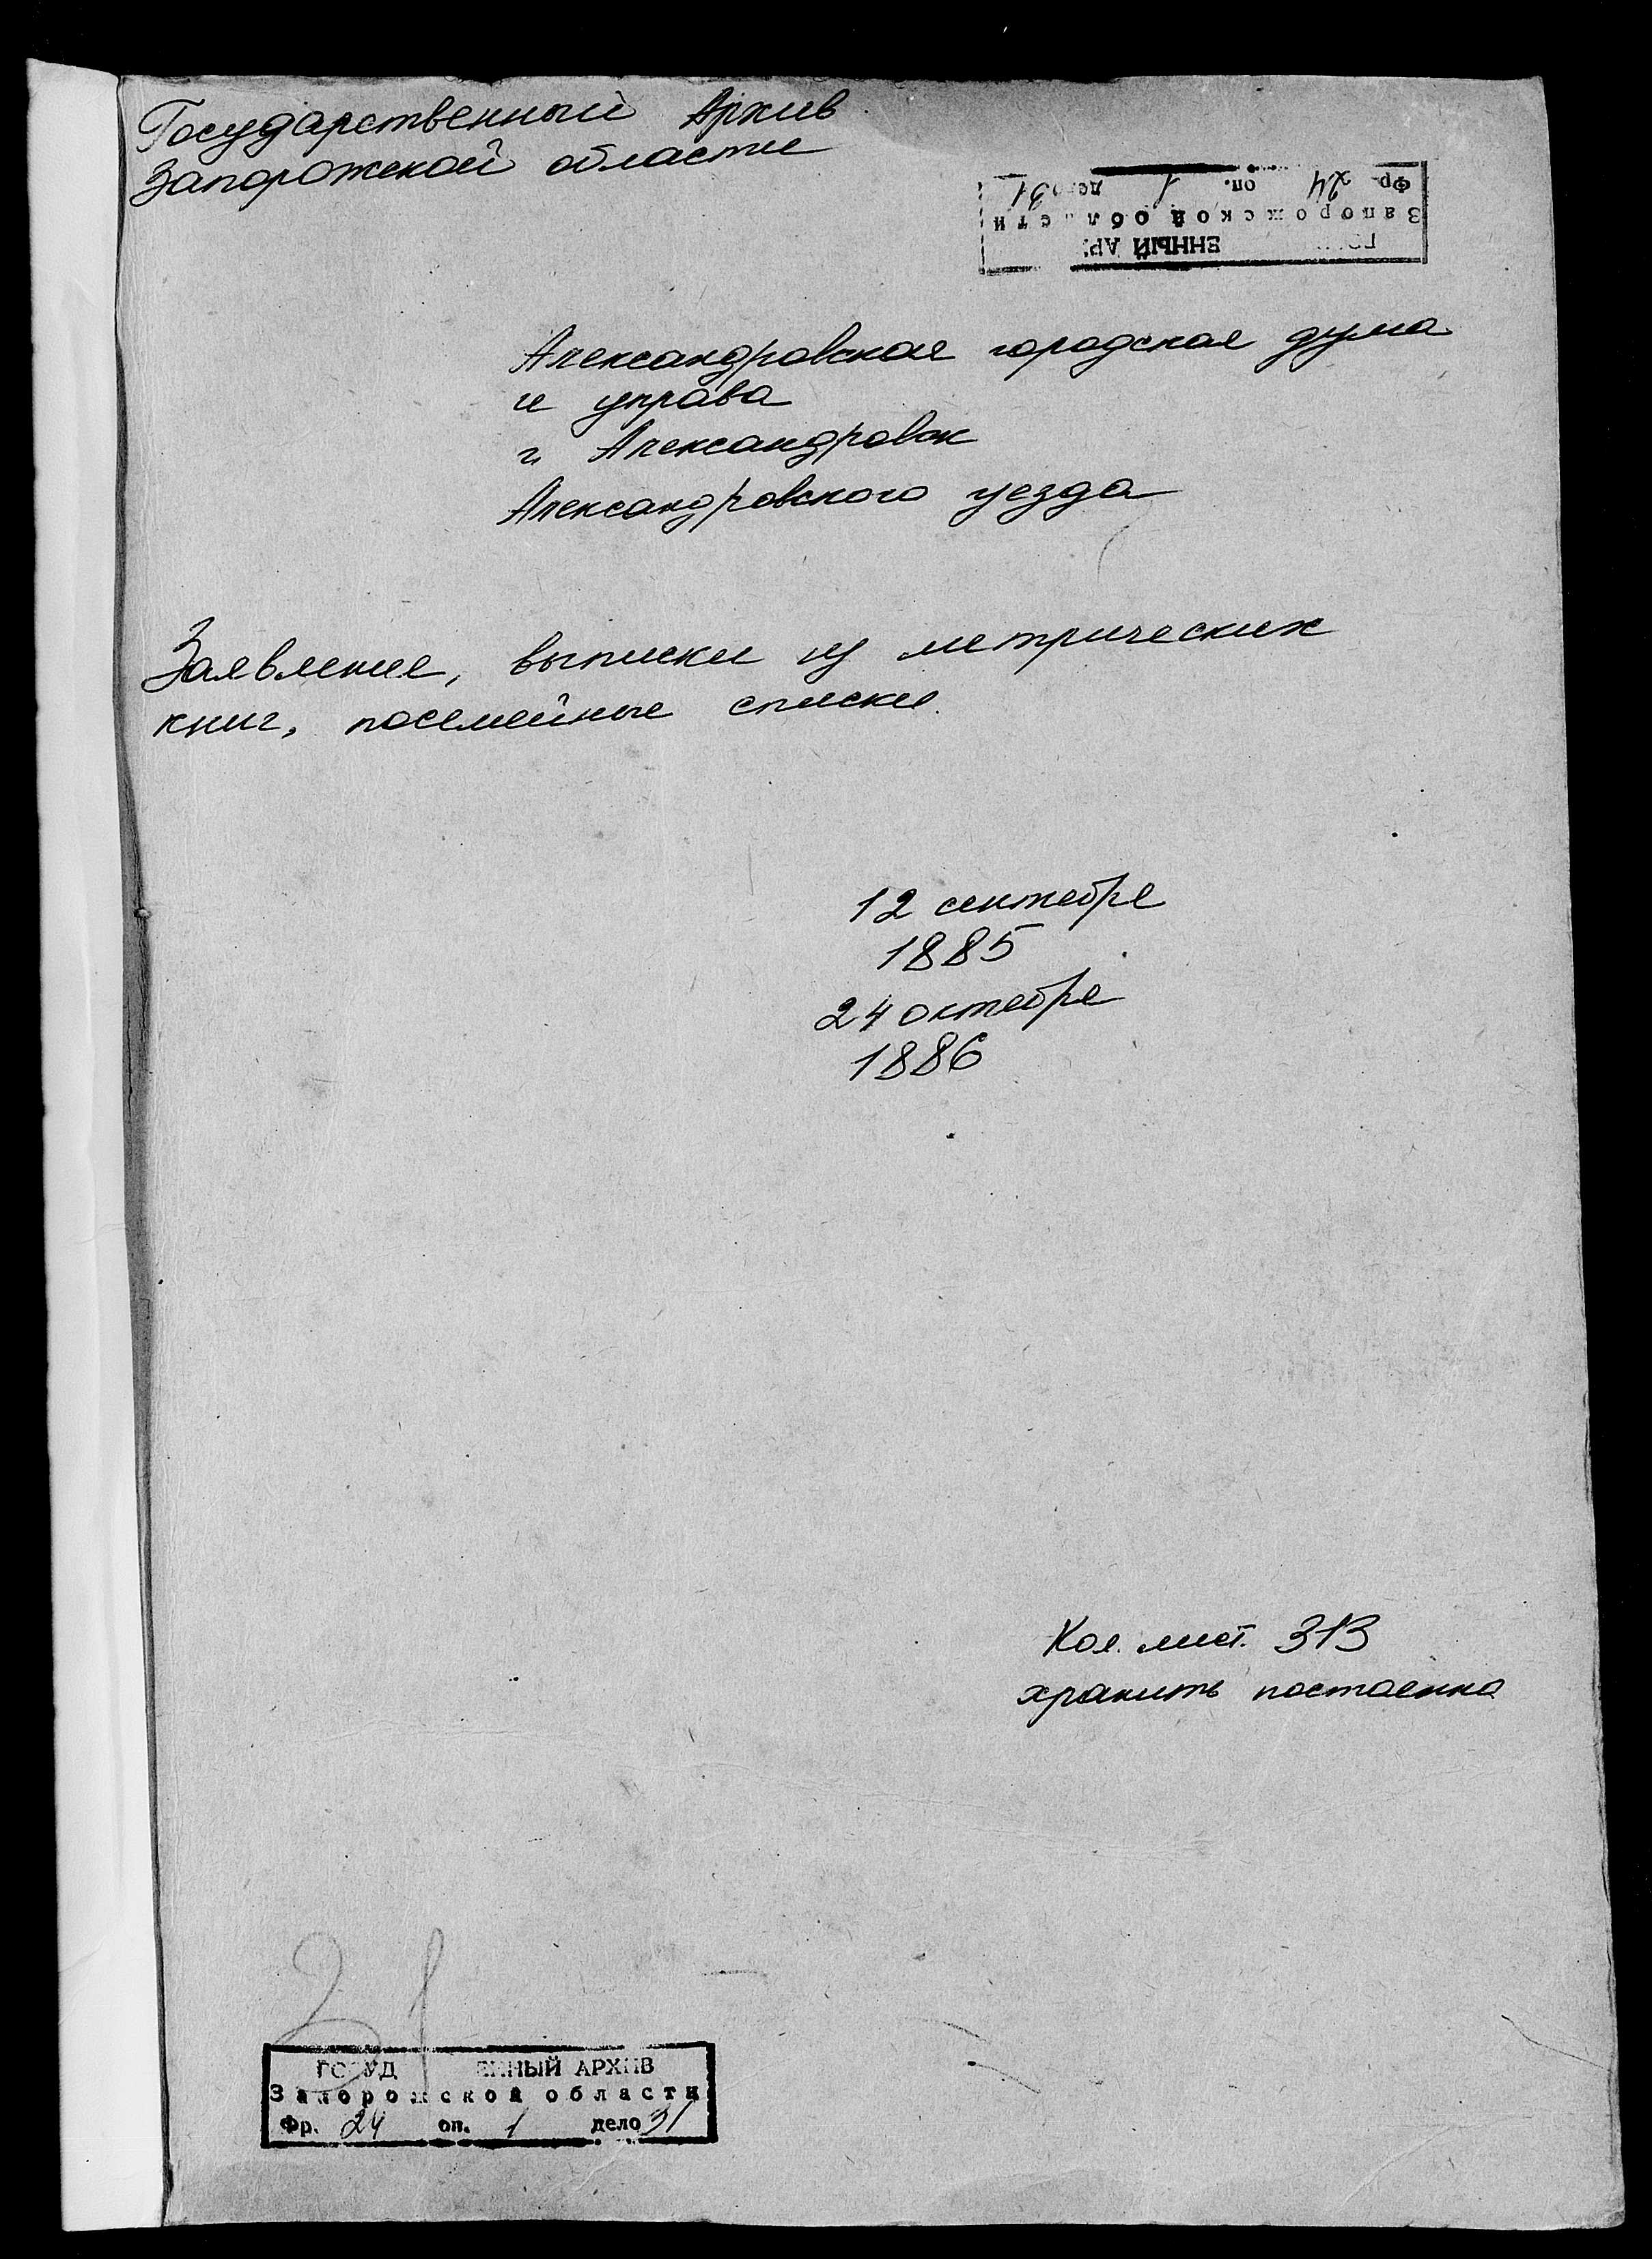 Государственный Архив
Запорожской области
ЕННЫЙ АР
Запорожской области
Фр. 24 оп. 1 дело 31
Александровская городская дума
и управа
г. Александровск
Александровского уезда
Заявления, выписки из метрических
книг, посемейные списки.
12 сентября
1885
24 октября
1886
Кол. лист. 313
хранить постоянно
31
ГОСУД ЕННЫЙ АРХИВ
Запорожской области
Фр. 24 оп. 1 дело 31